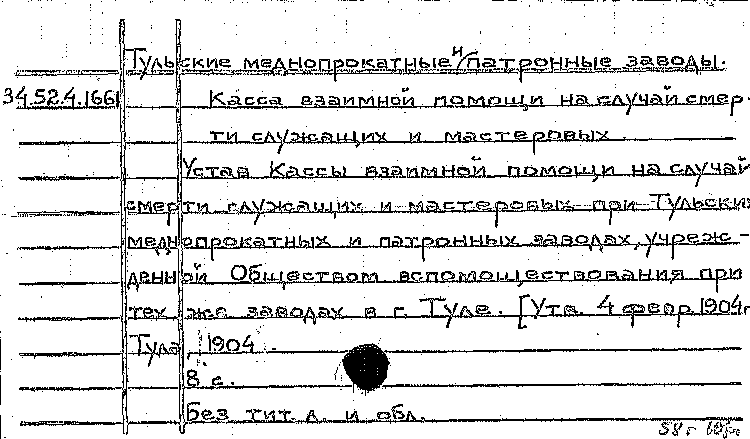 Тульские меднопрокатные и патронные заводы.
34.52.4.166
Касса взаимной помощи на случай смер-
ти служащих и мастеровых.
Устав Кассы взаимной помощи на случай
смерти служащих и мастеровых при Тульских
меднопрокатных и патронных заводах, учреж-
денной Обществом вспомоществования при
тех же заводах в г. Туле. [Утв. 4 февр. 1904г.
Тула, 1904.
8 с.
Без тит. л. и обл.